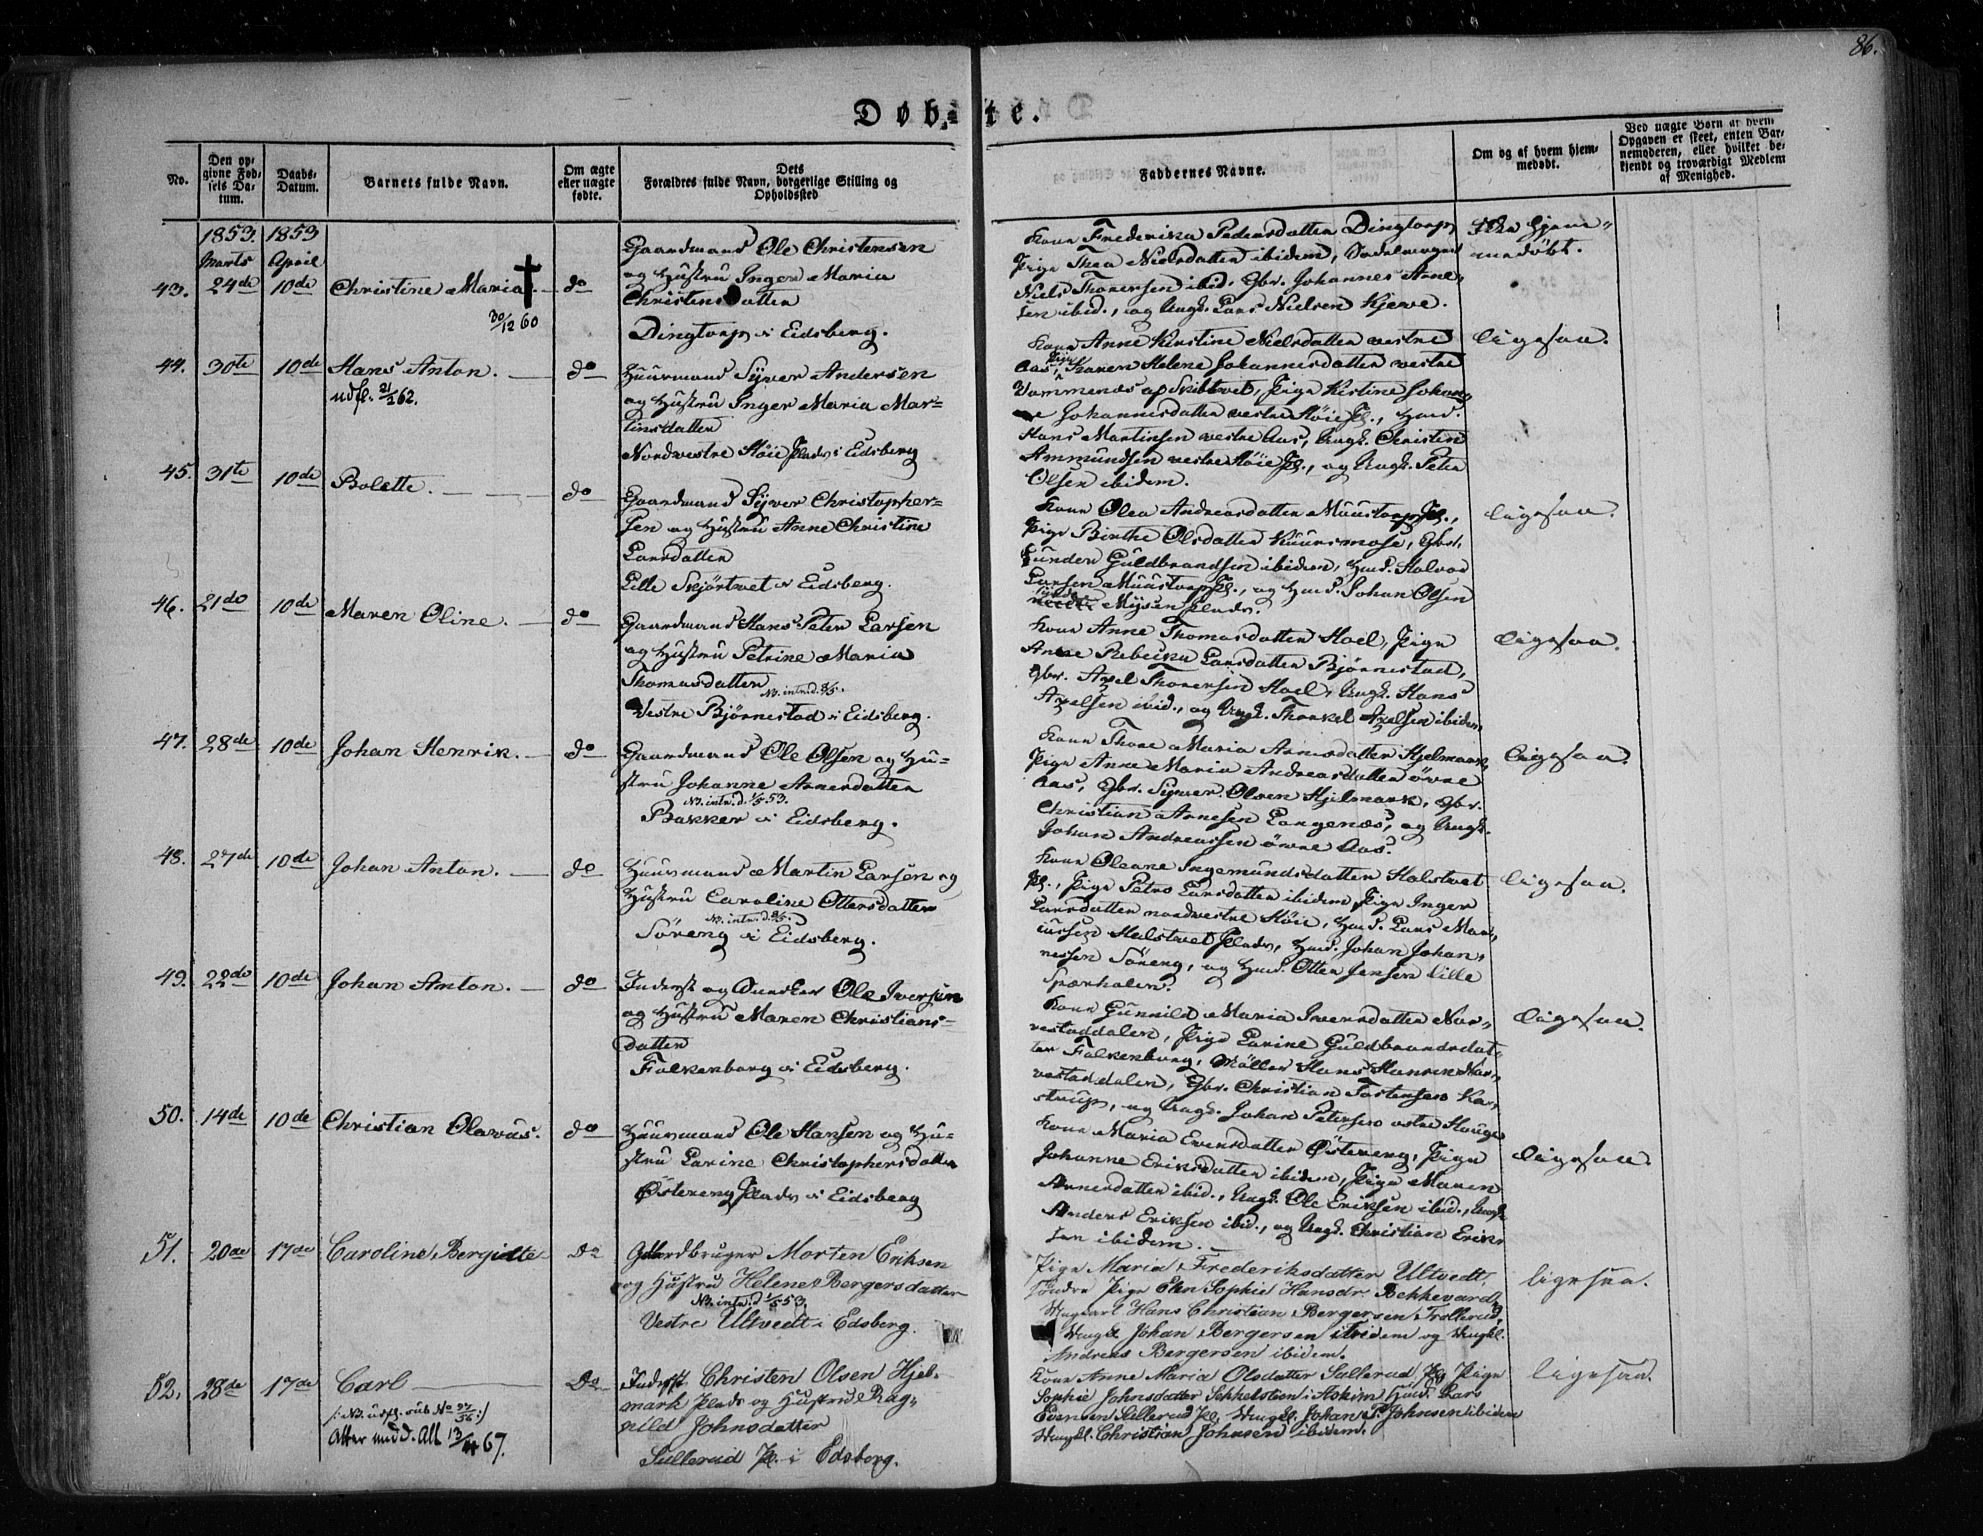 86.
Døbte.
No.
Den opgivne Fødsels Datum.
Daabs-Datum.
Barnets fulde Navn.
Om ægte eller uægte fødte.
Dets Forældres fulde Navn, borgerlige Stilling og Opholdssted
Faddernes Navne.
Om og af hvem hjemmedøbt.
Ved uægte Børn af hvem Opgaven er skeet, enten Barnemoderen, eller hvilket bekjendt og troværdigt Medlem af Menighed.
1853. 1853
Marts April
43. 24de 10de Christine Maria. do
30/12 60
Gaardmand Ole Christensen
og Hustru Inger Maria
Christensdatter
Dingtorp i Eidsberg.
Kone Frederika Pedersdatter Dingtorp,
Pige Thea Nielsdatter ibidem,
Niels Thorersen ibid. Gbr. Johannes Arne-
sen ibid., og Ungk. Lars Nielsen Kjerve.
Ikke hjem-
medøbt.
44. 30te 10de Hans Anton. do
udfl. 21/2 62.
Huusmand Syver Andersen
og Hustru Inger Maria Mar-
tinsdatter
Nordvestre Høie Plads i Eidsberg
Kone Anne Kirstine Nielsdatter vestre
Aas, Pige Karen Helene Johannesdatter vestre
Vammenæs af Skibtvet, Pige Kistine
Johannesdatter vestre Høie Pl., Hmd.
Hans Martinsen vestre Aas, Ungk. Christen
Ammundsen vestre Høie Pl., og Ungk. Peter
Olsen ibidem.
ligesaa.
45. 31te 10de Bolette. do
Gaardmand Syver Christopher-
sen og Hustru Anne Christine
Larsdatter
Lille Skjørtvet i Eidsberg.
Kone Olea Andreasdatter Muustorp Pl.,
Pige Birthe Olsdatter Kuursmose, Gbr.
Gunder Guldbrandsen ibidem, Hmd. Halvor
Larsen Muustorp Pl., og Hmd. Johan Olsen
Mysen Plads.
ligesaa.
46. 21de 10de Maren Oline. do
Gaardmand Hans Peter Larsen
og Hustru Petrine Maria
Thomasdatter
NB. intr. d. 8/5.
Vestre Bjørnestad i Eidsberg.
Kone Anne Thomasdatter Hoel, Pige
Anne Rebecka Larsdatter Bjørnestad,
Gbr. Axel Thorersen Hoel, Ungk. Hans
Axelsen ibid., og Ungk. Thorkel Axelsen ibidem.
ligesaa.
47. 28de 10de Johan Henrik. do
Gaardmand Ole Olsen og Hu-
stru Johanne Arnesdatter
NB. intr. d. 1/5 53.
Bakker i Eidsberg.
Kone Thore Maria Arnesdatter Hjelmark,
Pige Anne Maria Andreasdatter øvre
Aas, Gbr. Syver Olsen Hjelmark, Gbr.
Christian Arnesen Langenæs, og Ungk.
Johan Andreassen øvre Aas.
ligesaa.
48. 27de 10de Johan Anton. do
Huusmand Martin Larsen og
Hustru Caroline Ottersdatter
NB. intr. d. 8/5.
Søreng i Eidsberg.
Kone Oleane Ingemundsdatter Halstvet
Pl., Pige Petro Larsdatter ibidem, Pige Inger
Larsdatter nordvestre Høie, Hmd. Lars Mari-
ussen Halstvet Plads, Hmd. Johan Johan-
nessen Søreng, og Hmd. Otter Jensen lille
ligesaa.
49. 22de 10de Johan Anton. do
Inderst og Ole Iversen
og Hustru Maren Christians-
datter
Falkenborg i Eidsberg.
Kone Gunnild Maria Iversdatter Nar-
vestaddalen, Pige Larine Guldbrandsdat-
ter Falkenborg, Møller Hans Hansen Nar-
vestaddalen, Gbr. Christian Tostensen Ka-
strup, og Ungk. Johan Petersen østre Hauge
ligesaa.
50. 14de 10de Christian Olavus. do
Huusmand Ole Hansen og Hu-
stru Larine Christophersdatter
Østereng Plads i Eidsberg
Kone Maria Evensdatter Østereng, Pige
Johanne Eriksdatter ibidem, Pige Maren
Arnesdatter ibid., Ungk. Ole Eriksen ibid., Ungk.
Anders Eriksen ibid., og Ungk. Christian Erik-
sen ibidem.
ligesaa.
51. 20de 17de Caroline Bergitte Do
Gaardbruger Morten Eriksen
og Hustrue Helene Bergersdatter
NB. intr. d. 1/5 53.
Vestre Ultvedt i Edsberg.
Pige Maria Frederiksdatter Ultvedt
søndre Pige Elen Sophie Hansdr. Bekkevard,
Ungkarl Hans Christian Bergersen Trollerud,
Ungk. Johan Bergersen ibidem og Ungkl.
Andreas Bergersen ibidem.
ligesaa.
52. 28de 17de Carl Do
/: NB. udfl. sub No 27/56 :/
Atter medd. All 13/4 67.
Inderst Christen Olsen Hjel-
mark Plads og Hustrue Rag-
nild Johnsdatter
Sullerud Pl. i Edsberg.
Kone Anne Maria Olsdatter Sullerud Pl. Pige
Sophie Johnsdatter Sekkelsteen i Askim Huusmd. Lars
Evensen Sullerud Pl. Ungkl. Johan P. Johnsen ibidem
Ungkl. Christian Johnsen ibidem.
ligesaa.